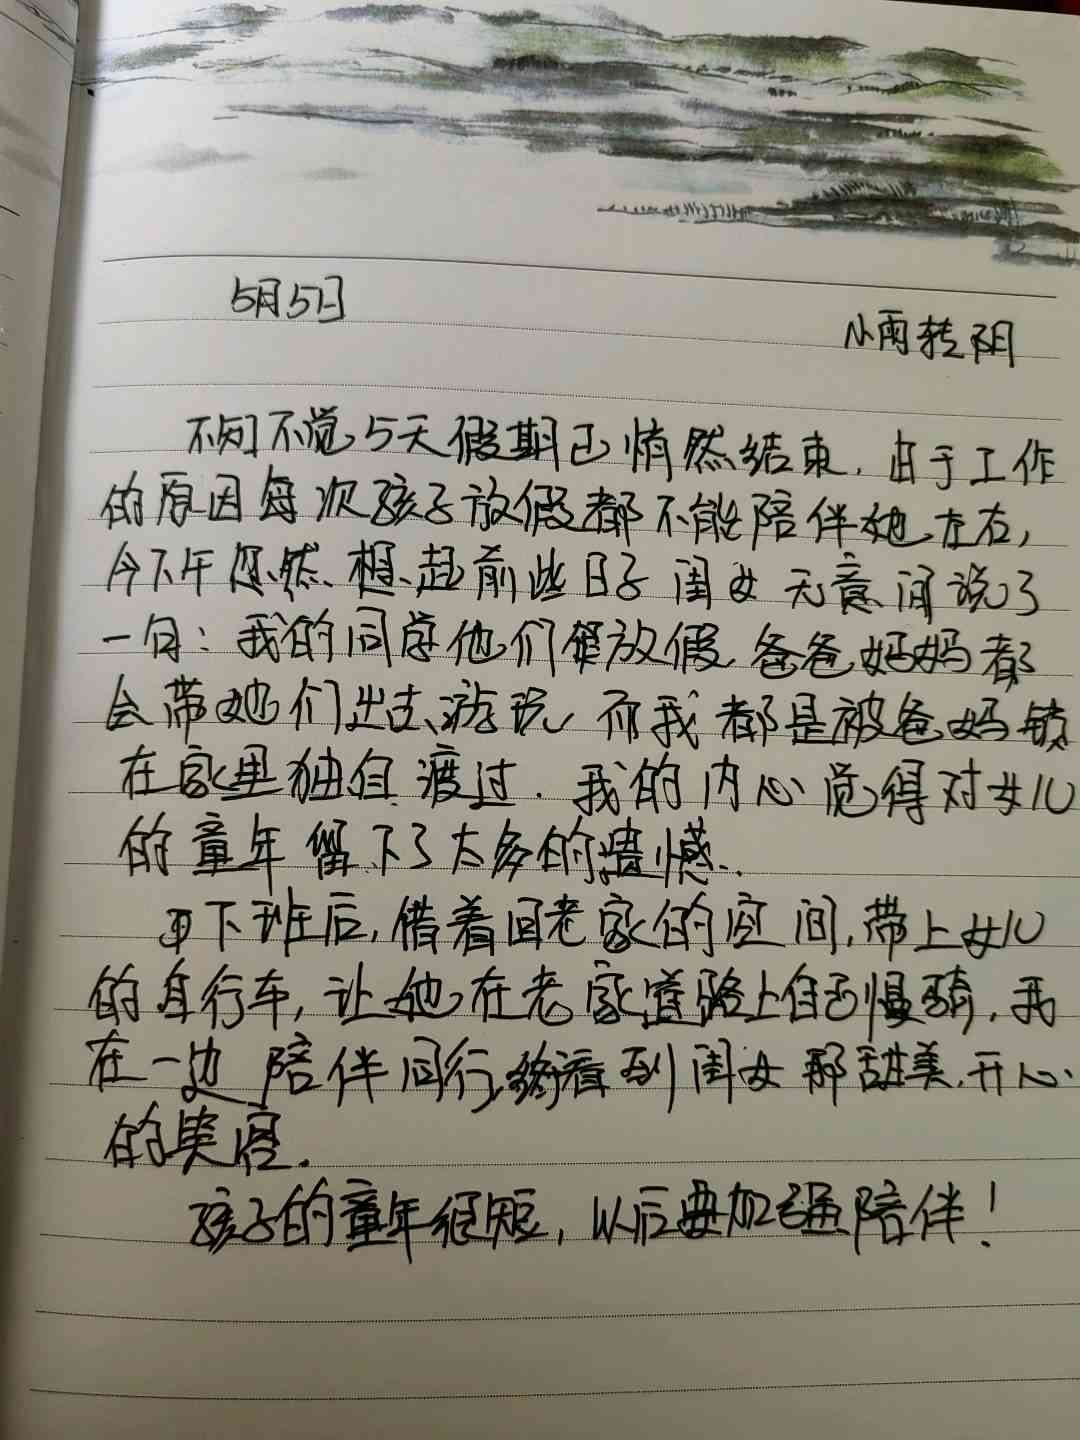 5月5日
小雨转阴
不知不觉5天假期已悄然结束，由于工作
的原因每次孩子放假都不能陪伴她左右，
今下午忽然想起前些日子闺女无意间说了
一句：我的同学他们每放假爸爸妈妈都
会带她们出去游玩，而我都是被爸妈锁
在家里独自渡过．我的内心觉得对女儿
的童年留下了太多的遗憾．
下班后，借着回老家的空间，带上女儿
的自行车，让她在老家道路上自己慢骑，我
在一边陪伴同行，看到闺女那甜美、开心
的笑容．
孩子的童年很短，以后要加强陪伴！